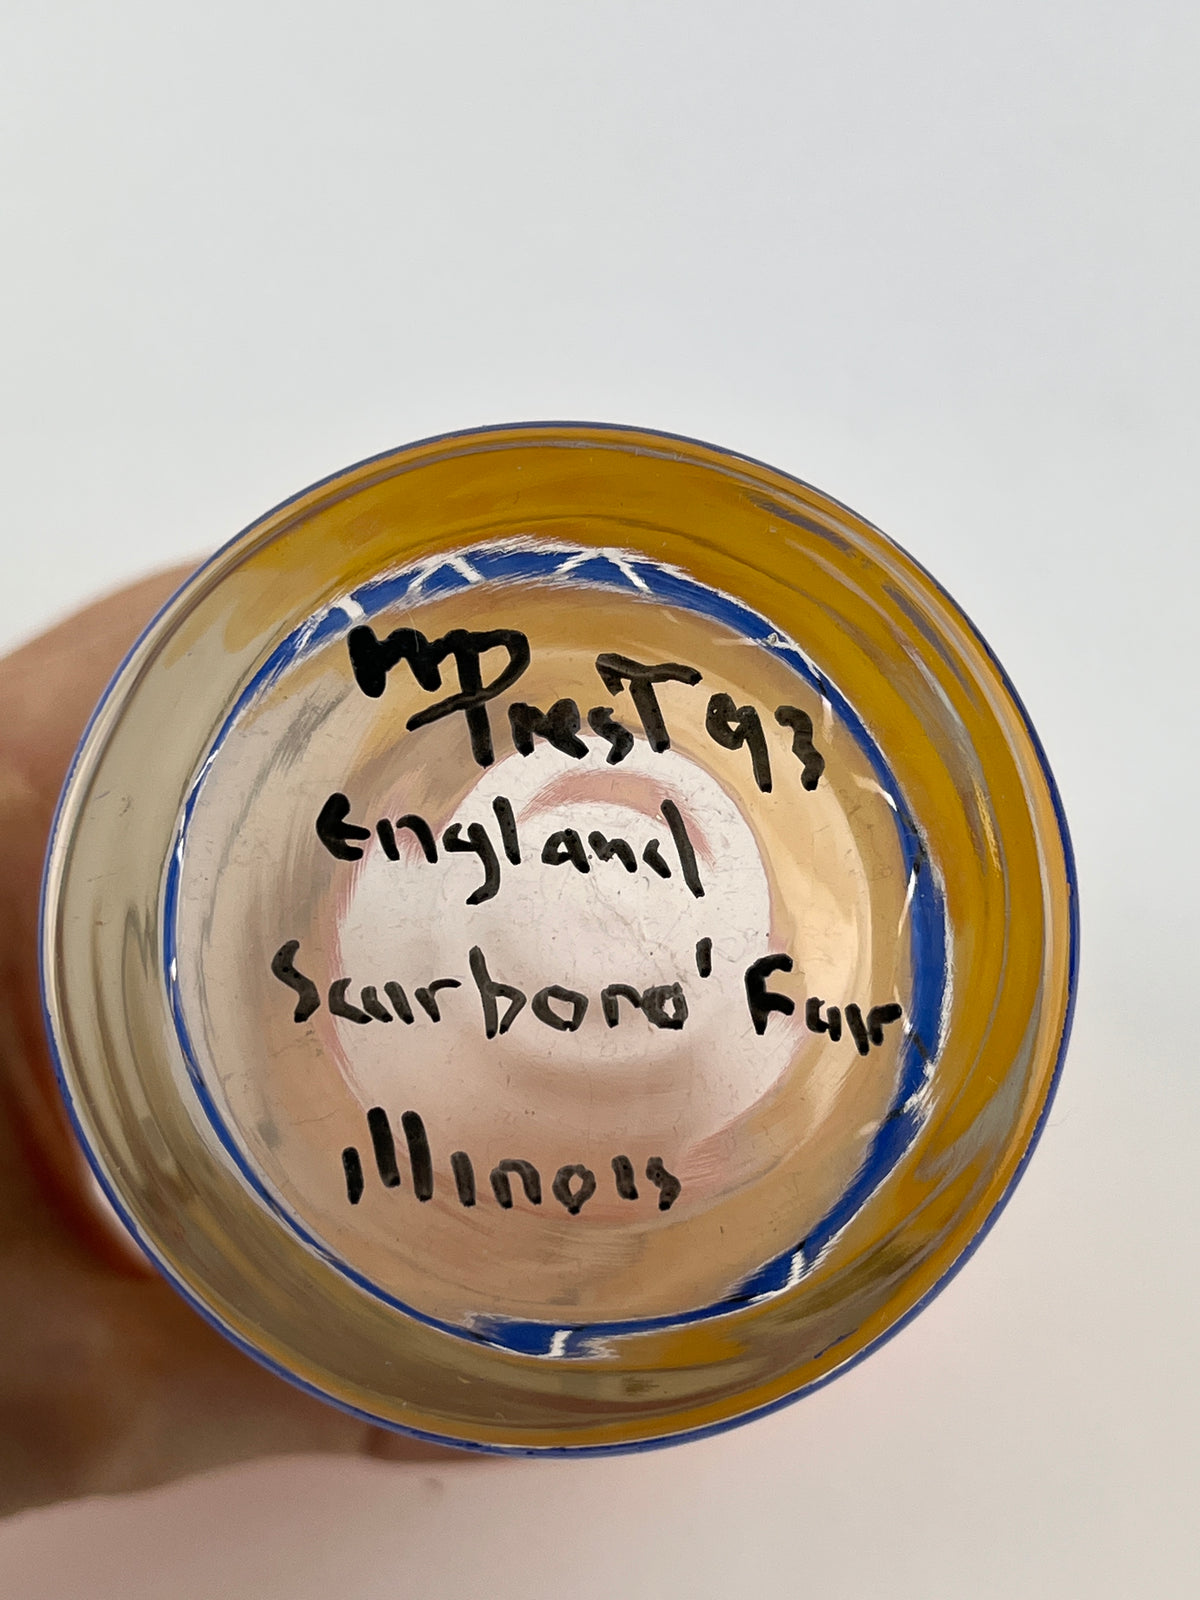 MP Prest 93
England
Scarboro' Fair
Illinois